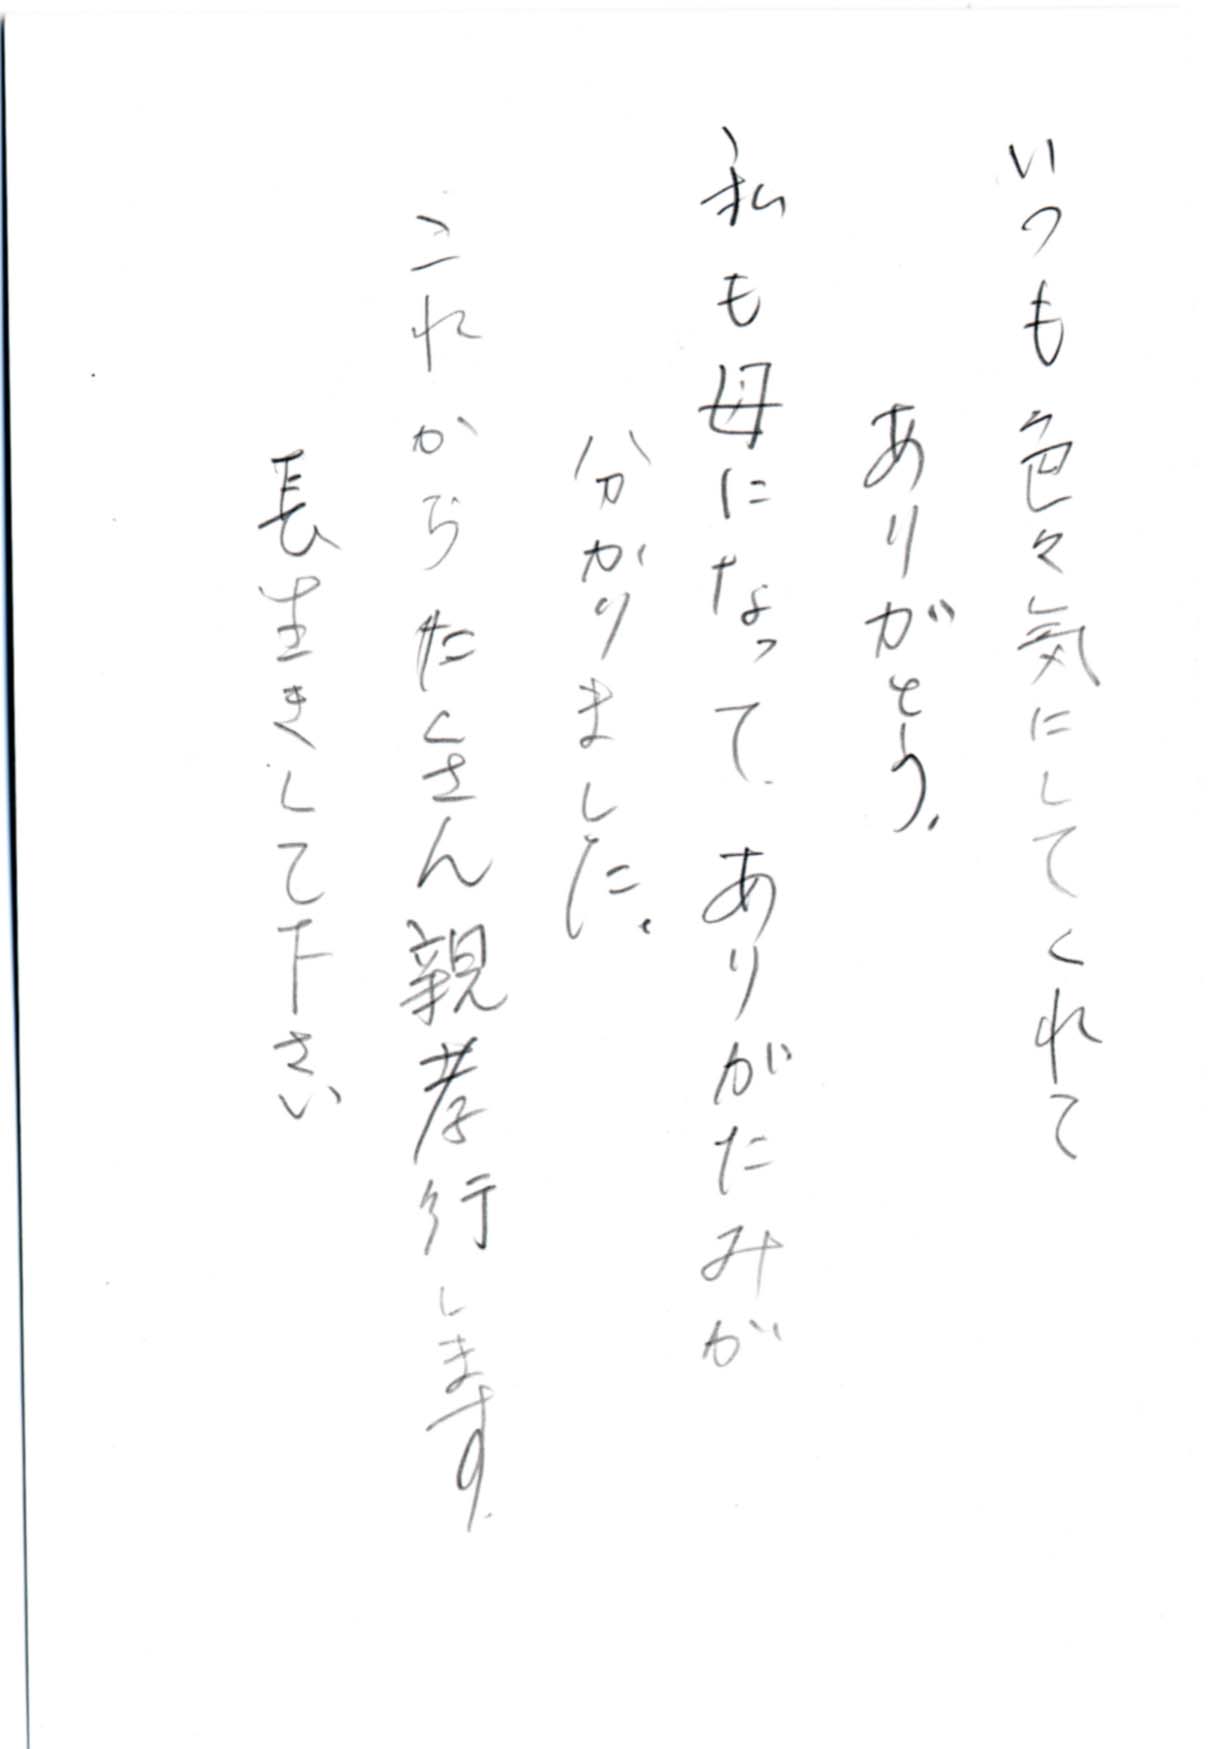 いつも色々気にしてくれて
ありがとう。
私も母になって、ありがたみが
分かりました。
これからたくさん親孝行します。
長生きして下さい